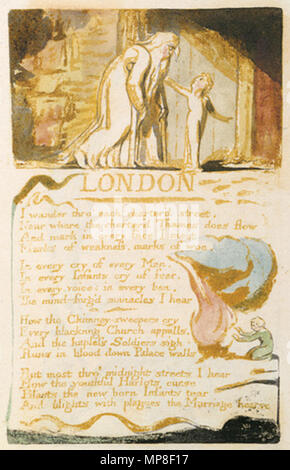 LONDON
I wander thro' each charter'd street,
Near where the charter'd Thames does flow
And mark in every face I meet
Marks of weakness, marks of woe.
In every cry of every Man,
In every Infants cry of fear,
In every voice; in every ban,
The mind-forg'd manacles I hear
How the Chimney-sweepers cry
Every blackning Church appalls,
And the hapless Soldiers sigh
Runs in blood down Palace walls
But most thro' midnight streets I hear
How the youthful Harlots curse
Blasts the new born Infants tear
And blights with plagues the Marriage hearse
www.alamy.com - MP8F17